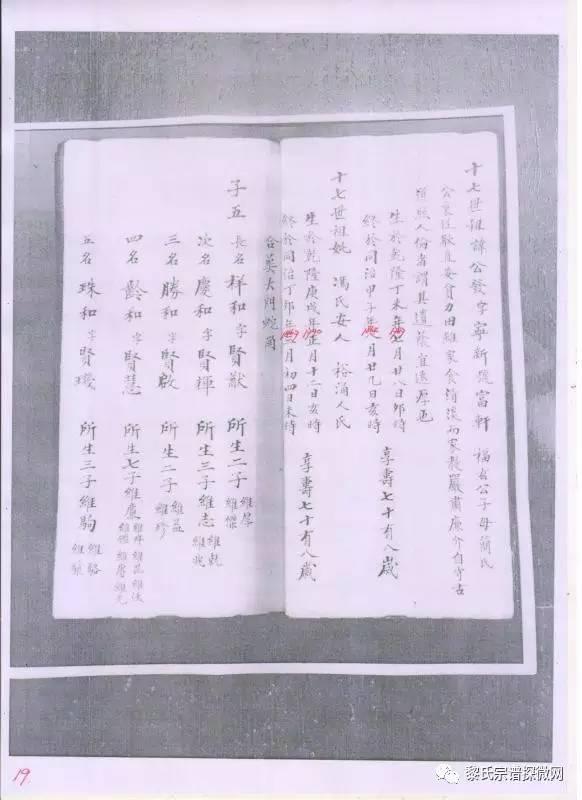 十七世祖諱公發字寧新號富軒 福吉公子母簡氏
公賦性耿直安貧力田雖家食稍淡而家教嚴肅廉介自守古
道照人倫者謂其遺蔭宜遠厚也
生於乾隆丁未年 月廿八日卯時
終於同治甲子年 月廿九日亥時
享壽七十有八歲
十七世祖妣 馮氏安人 裕涌人氏
生於乾隆庚戌年正月十二日亥時
終於同治丁卯年 月初四日未時
享壽七十有八歲
合葬大門蛇岡
子五
長名 祥和 字 賢猷 所生二子 維
次名 慶和 字 賢輝 所生三子 維志 維
三名 勝和 字 賢啟 所生二子 維益 維珍
四名 齡和 字 賢慧 所生七子 維廉 維
五名 珠和 字 賢璣 所生三子 維駒 維駱 維
19
黎氏宗谱探微网